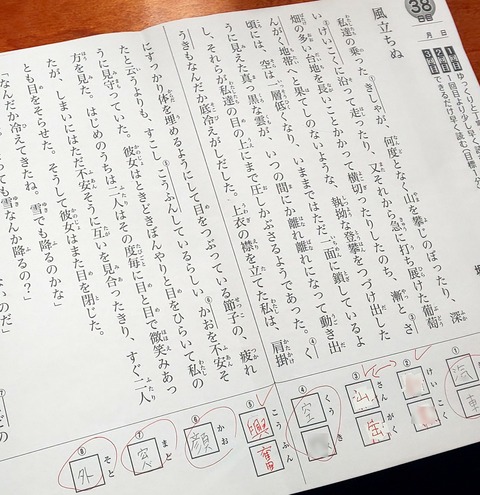 38
日目
月　日
風立ちぬ
私達の乗った①きしゃが、何度となく山を攀じのぼったり、深
い②けいこくに沿って走ったり、又それから急に打ち展けた葡萄
畑の多い台地を長いことかかって横切ったりしたのち、漸っと③さ
んがく地帯へと果てしのないような、執拗な登攀をつづけ出した
頃には、空は一層低くなり、いままではただ一面に鎖しているよ
うに見えた真っ黒な雲が、いつの間にか離れ離れになって動き出
し、それらが私達の目の上にまで圧しかぶさるようであった。④く
うきもなんだか底冷えがしだした。上衣の襟を立てた私は、肩掛
にすっかり体を埋めるようにして目をつぶっている節子の、疲れ
たと云うよりも、すこし⑤こうふんしているらしい⑥かおを不安そ
うに見守っていた。彼女はときどきぼんやりと目をひらいて私の
方を見た。はじめのうちは二人はその度毎に目と目で微笑みあっ
たが、しまいにはただ不安そうに互いを見合ったきり、すぐ二人
とも目をそらせた。そうして彼女はまた目を閉じた。
「なんだか冷えてきたね。雪でも降るのかな」
ても雪なんか降るの？」
①
汽
車
②
けい
こく
③
さん
山
がく
岳
④
くう
空
き
⑤
こう
興
ふん
奮
⑥
かお
顔
⑦
まど
窓
⑧
そと
外